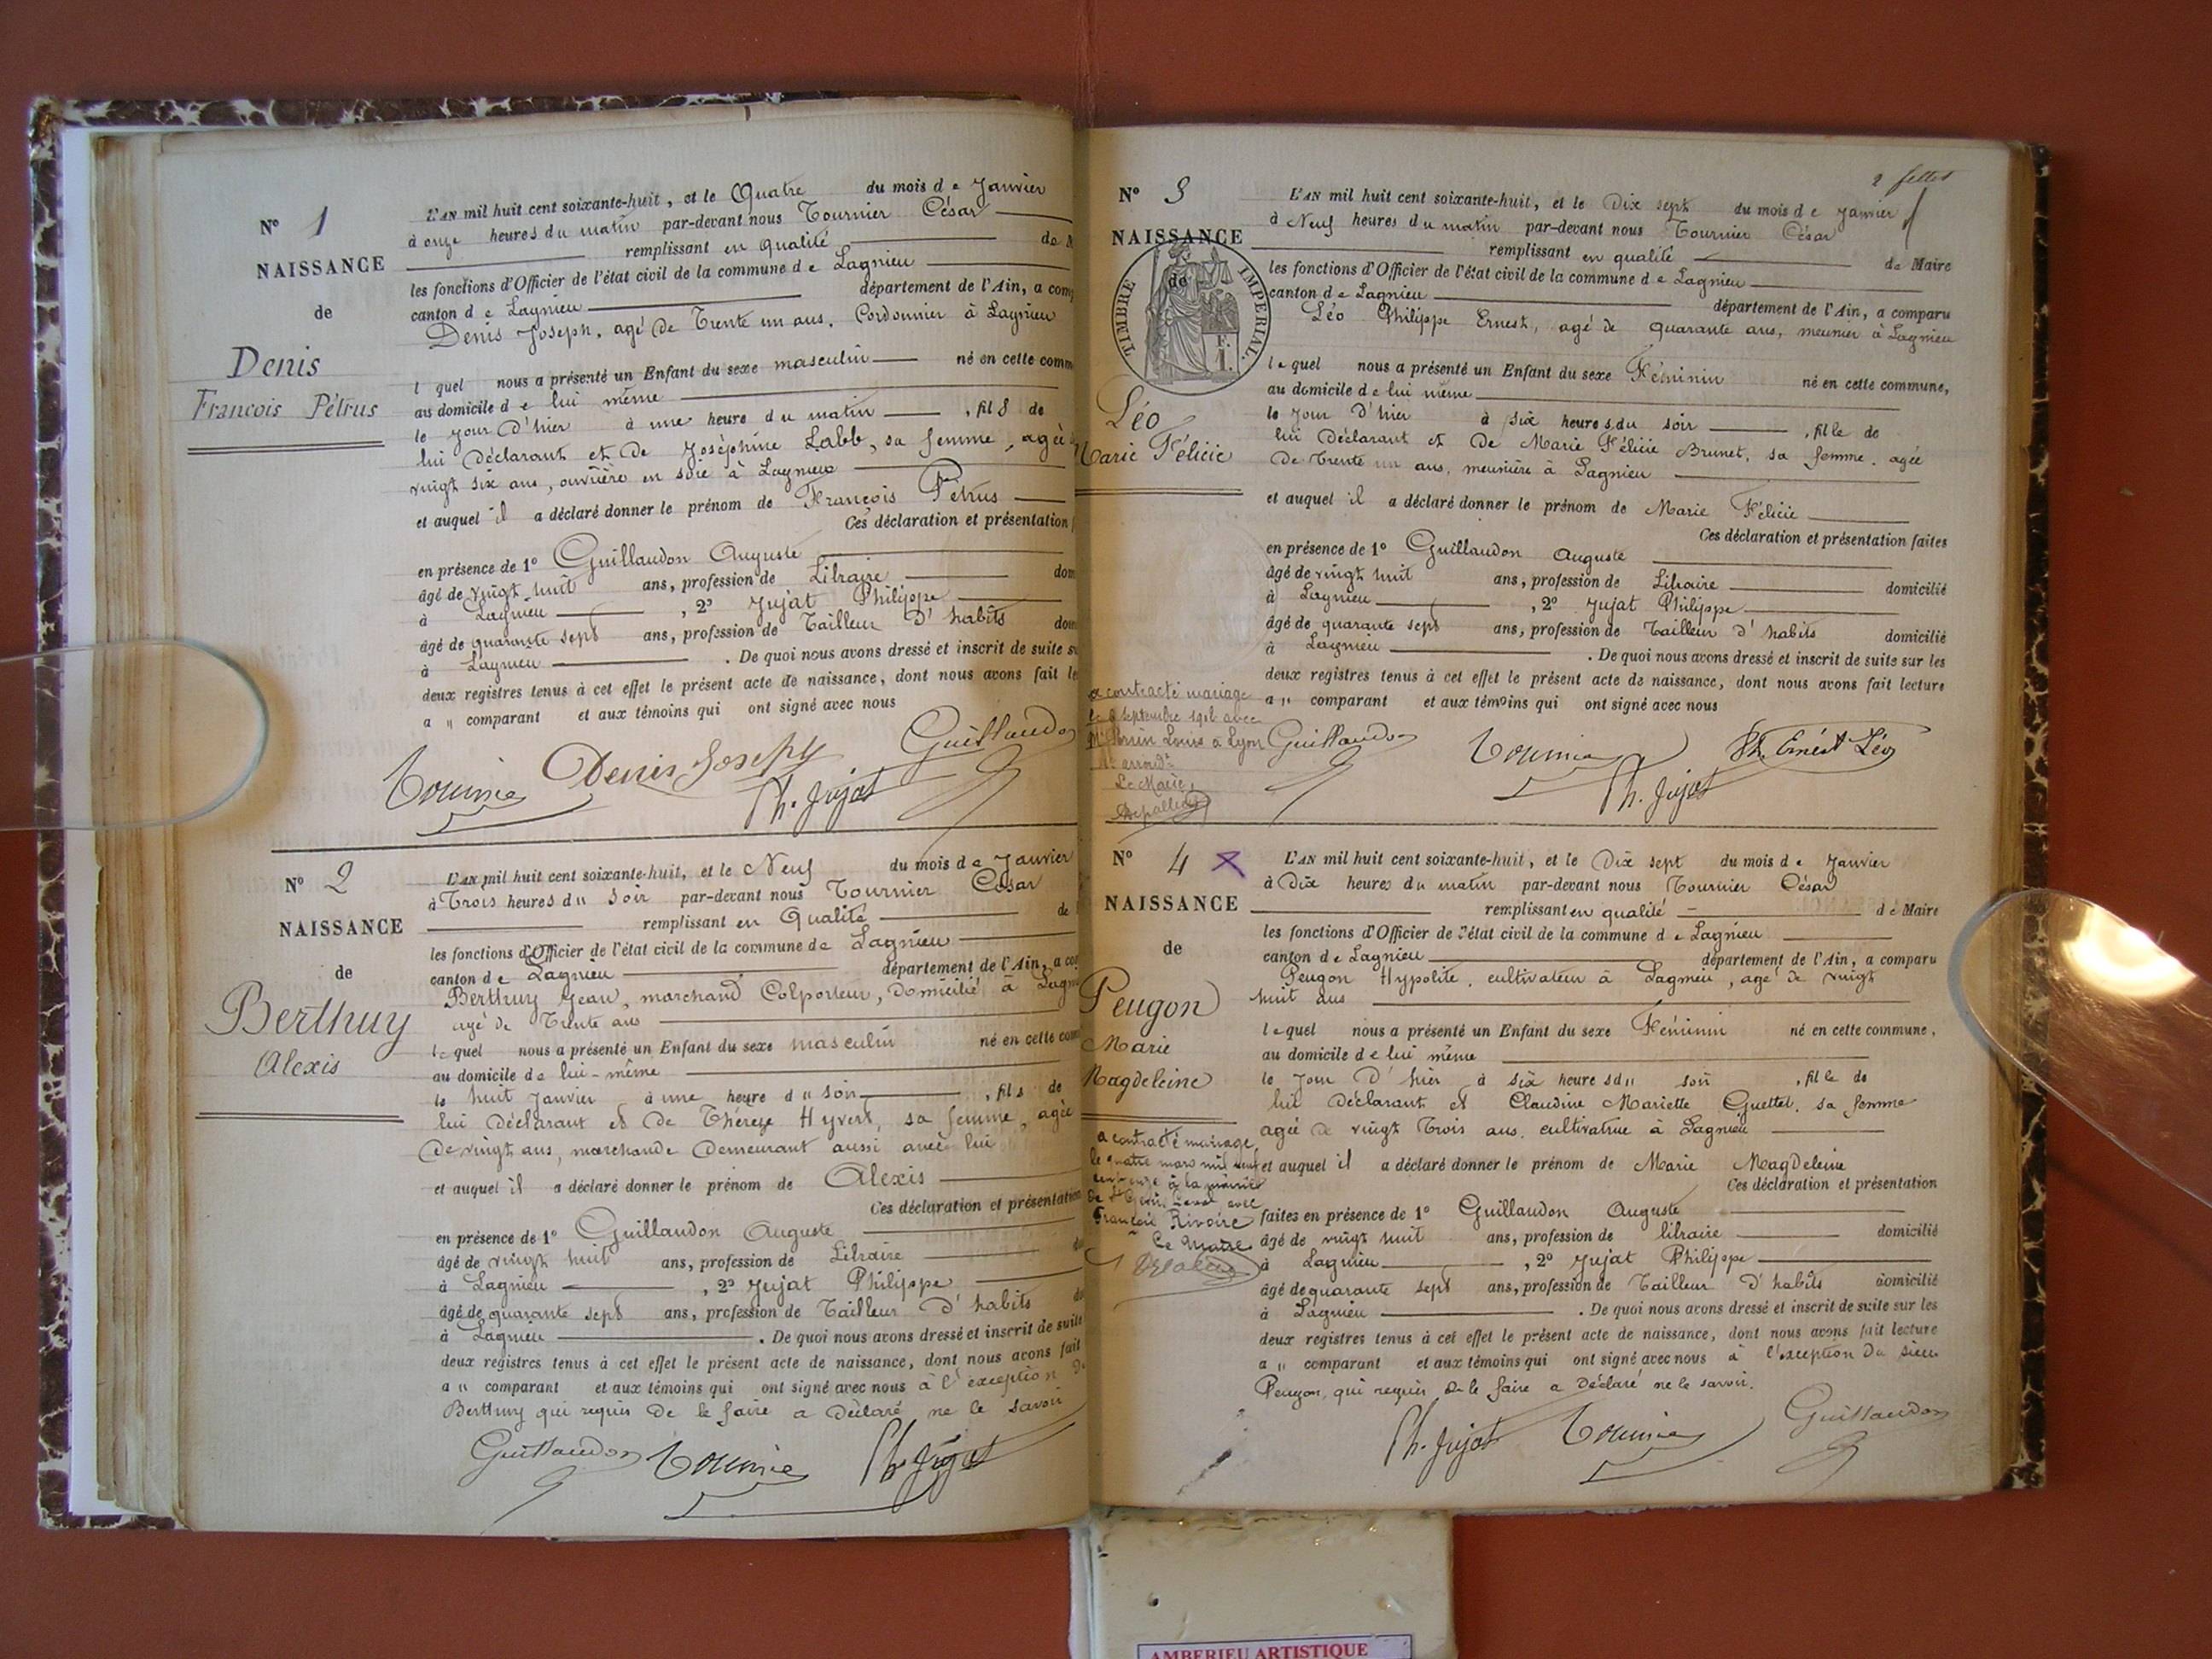 N° 1
NAISSANCE
de
Denis
François Pétrus
L'AN mil huit cent soixante-huit, et le Quatre du mois de Janvier
à onze heures du matin par-devant nous Tournier César
remplissant en qualité de M
les fonctions d'Officier de l'état civil de la commune de Lagnieu
canton de Lagnieu département de l'Ain, a comp
Denis Joseph, agé de Trente un ans, Cordonnier à Lagnieu
l quel nous a présenté un Enfant du sexe masculin né en cette comm
au domicile de lui même
le jour d'hier à une heure du matin , fils de
lui déclarant et de Joséphine Labb, sa femme, agée
vingt six ans, ouvrière en soie à Lagnieu
et auquel il a déclaré donner le prénom de François Pétrus
Ces déclaration et présentation
en présence de 1° Guillaudon Auguste
âgé de vingt huit ans, profession de Libraire dom
à Lagnieu , 2° Jujat Philippe
âgé de quarante sept ans, profession de Tailleur d'habits dom
à Lagnieu . De quoi nous avons dressé et inscrit de suite su
deux registres tenus à cet effet le présent acte de naissance, dont nous avons fait le
a u comparant et aux témoins qui ont signé avec nous
Tournier Denis Joseph Guillaudon
Ph. Jujat
N° 2
NAISSANCE
de
Berthuy
Alexis
L'AN mil huit cent soixante-huit, et le Neuf du mois de Janvier
à Trois heures du soir par-devant nous Tournier César
remplissant en Qualité de
les fonctions d'Officier de l'état civil de la commune de Lagnieu
canton de Lagnieu département de l'Ain, a co
Berthuy Jean, marchand Colporteur, domicilié à Lagn
agé de Trente ans
lequel nous a présenté un Enfant du sexe masculin né en cette com
au domicile de lui-même
le huit Janvier à une heure du soir , fils de
lui déclarant et de Thérèze Hyvert, sa femme, agée
de vingt ans, marchande demeurant aussi avec lui
et auquel il a déclaré donner le prénom de Alexis
Ces déclaration et présentation
en présence de 1° Guillaudon Auguste
âgé de vingt huit ans, profession de Libraire
à Lagnieu , 2° Jujat Philippe
âgé de quarante sept ans, profession de Tailleur d'habits
à Lagnieu . De quoi nous avons dressé et inscrit de suite
deux registres tenus à cet effet le présent acte de naissance, dont nous avons fait
a u comparant et aux témoins qui ont signé avec nous à l'exception d
Berthuy qui requis de le faire a déclaré ne le savoir
Guillaudon Tournier Ph. Jujat
N° 3
NAISSANCE
de
TIMBRE IMPÉRIAL.
F.
1.
Léo
Marie Félicie
L'AN mil huit cent soixante-huit, et le Dix sept du mois de Janvier
à Neuf heures du matin par-devant nous Tournier César
remplissant en qualité de Maire
les fonctions d'Officier de l'état civil de la commune de Lagnieu
canton de Lagnieu département de l'Ain, a comparu
Léo Philippe Ernest, agé de quarante ans, meunier à Lagnieu
lequel nous a présenté un Enfant du sexe Féminin né en cette commune,
au domicile de lui même
le jour d'hier à six heures du soir , fille de
lui déclarant et de Marie Félicie Brunet, sa femme, agée
de Trente un ans, meunière à Lagnieu
et auquel il a déclaré donner le prénom de Marie Félicie
Ces déclaration et présentation faites
en présence de 1° Guillaudon Auguste
âgé de vingt huit ans, profession de Libraire domicilié
à Lagnieu , 2° Jujat Philippe
âgé de quarante sept ans, profession de Tailleur d'habits domicilié
à Lagnieu . De quoi nous avons dressé et inscrit de suite sur les
deux registres tenus à cet effet le présent acte de naissance, dont nous avons fait lecture
a u comparant et aux témoins qui ont signé avec nous
a contracté mariage
le septembre avec
Louis à Lyon
Le Maire,
Guillaudon Tournier Ph. Ernest Léo
Ph. Jujat
N° 4
NAISSANCE
de
Peugon
Marie
Magdeleine
L'AN mil huit cent soixante-huit, et le Dix sept du mois de Janvier
à Dix heures du matin par-devant nous Tournier César
remplissant en qualité de Maire
les fonctions d'Officier de l'état civil de la commune de Lagnieu
canton de Lagnieu département de l'Ain, a comparu
Peugon Hypolite, cultivateur à Lagnieu, agé de vingt
huit ans
lequel nous a présenté un Enfant du sexe Féminin né en cette commune,
au domicile de lui même
le jour d'hier à six heures du soir , fille de
lui déclarant et Claudine Mariette Guettet, sa femme
agée de vingt Trois ans, cultivatrice à Lagnieu
et auquel il a déclaré donner le prénom de Marie Magdeleine
Ces déclaration et présentation
faites en présence de 1° Guillaudon Auguste
âgé de vingt huit ans, profession de libraire domicilié
à Lagnieu , 2° Jujat Philippe
âgé de quarante sept ans, profession de Tailleur d'habits domicilié
à Lagnieu . De quoi nous avons dressé et inscrit de suite sur les
deux registres tenus à cet effet le présent acte de naissance, dont nous avons fait lecture
a u comparant et aux témoins qui ont signé avec nous à l'exception du sieur
Peugon, qui requis de le faire a déclaré ne le savoir.
a contracté mariage
le quatre mars mil neuf
cent onze à la mairie
de St Genis Laval avec
François Rivoire
Le Maire
Ph. Jujat Tournier Guillaudon
AMBERIEU ARTISTIQUE